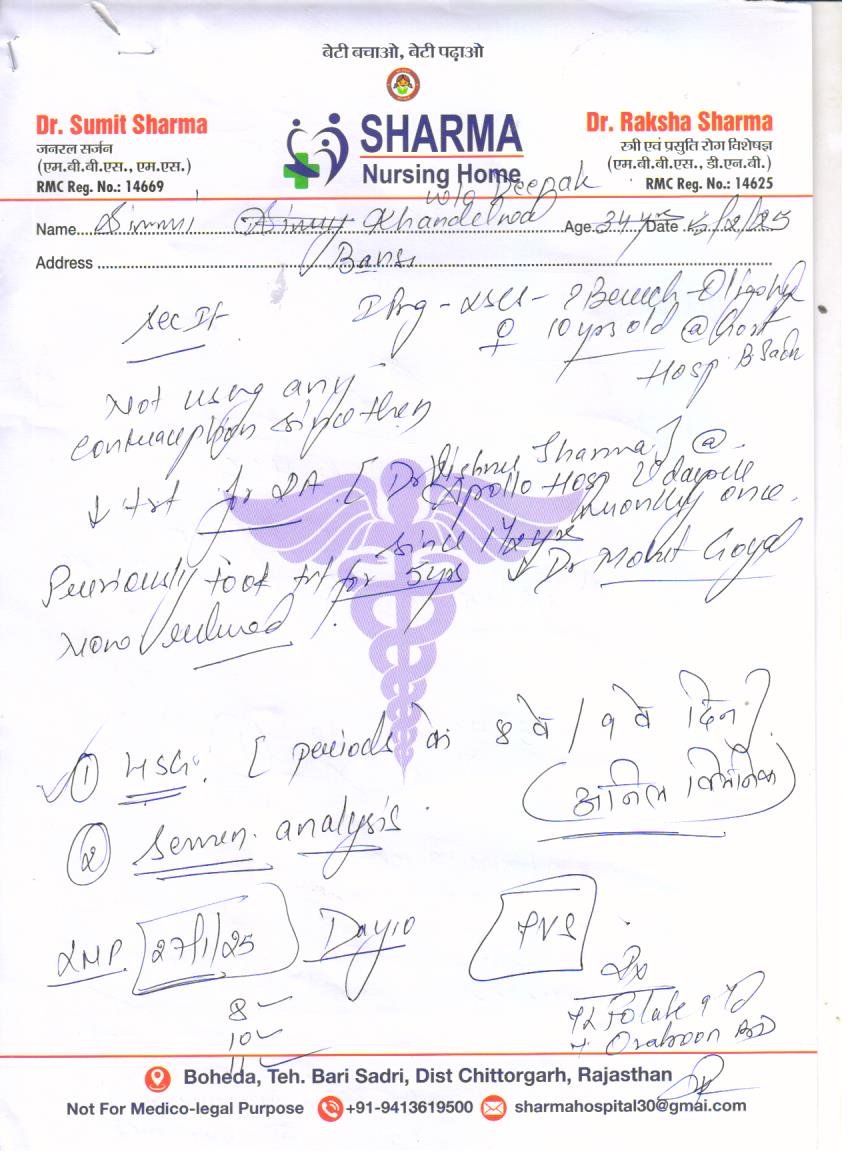 बेटी बचाओ, बेटी पढ़ाओ
Dr. Sumit Sharma
जनरल सर्जन
(एम.बी.बी.एस., एम.एस.)
RMC Reg. No.: 14669
SHARMA
Nursing Home
Dr. Raksha Sharma
स्त्री एवं प्रसुति रोग विशेषज्ञ
(एम.बी.बी.एस., डी.एन.बी.)
RMC Reg. No.: 14625
w/o Deepak
Name Simmi Khandelwal Age 34 yrs Date /2/25
Address Bansi
Sec If
I Prg - LSCS - Breech - Oligohyd
♀ 10 yrs old @ Govt
Hosp. B. Sadri
Not using any
contraception since then
↓ trt for [Dr Sharma] @
Apollo Hosp
monthly once
since 1½ yrs
Previously took trt for 5 yrs ↓ Dr Mohit Goyal
① HSG. [periods के 8 वे / 9 वे दिन]
② Semen analysis.
LMP. 27/1/25 Day 10
TVS
8
10
11
Rx
Folate
BD
Boheda, Teh. Bari Sadri, Dist Chittorgarh, Rajasthan
Not For Medico-legal Purpose +91-9413619500 sharmahospital30@gmai.com